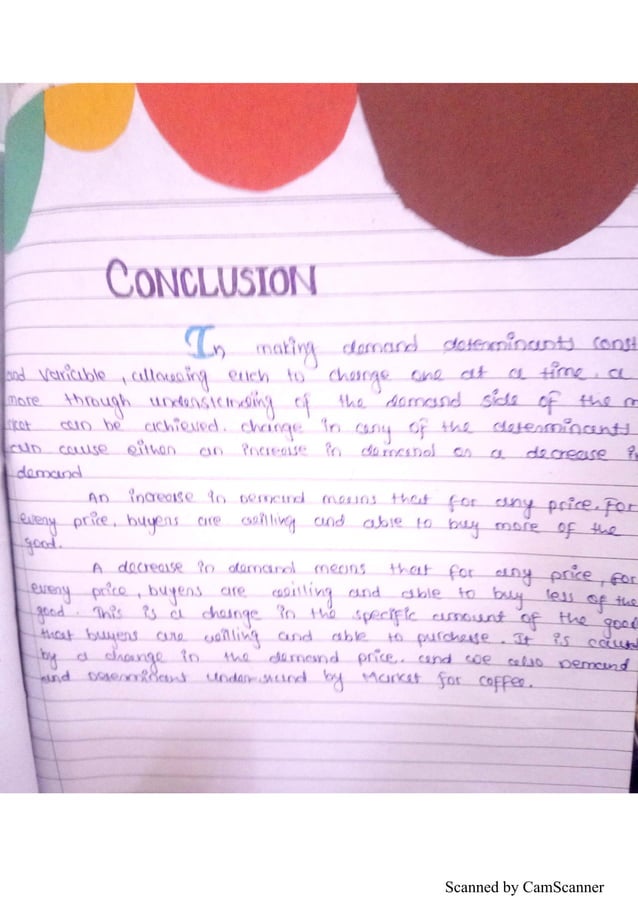 CONCLUSION
In making demand determinants const
and variable, allowing each to change one at a time. a
more through understanding of the demand side of the m
rket can be achieved. change in any of the determinants
can cause either an increase in demand or a decrease in
demand
An increase in Demand means that for any price. For
every price, buyers are willing and able to buy more of the
good.
A decrease in demand means that for any price, for
every price, buyers are willing and able to buy less of the
good. This is a change in the specific amount of the good
that buyers are willing and able to purchase. It is caus
by a change in the demand price. and we also Demand
and Determinant understand by Market for coffee.
Scanned by CamScanner